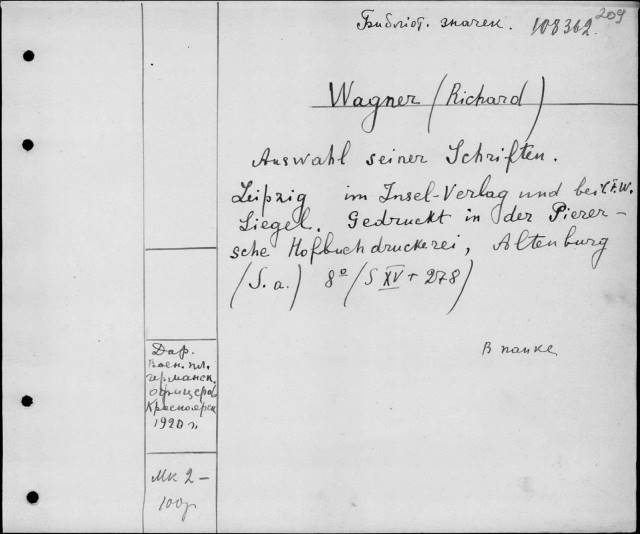 Библіот. знаtek. 108362. 209
Wagner (Richard)
Auswahl seiner Schriften.
Leipzig im Insel-Verlag und bei C.F.W.
Siegel. Gedruckt in der Pierer-
sche Hofbuchdruckerei, Altenburg
(S. a.) 8º (S XV + 278)
В папке
Дар.
Воен. пл.
германск.
офицеров
Красноярск
1920 г.
Мк 2 –
100р